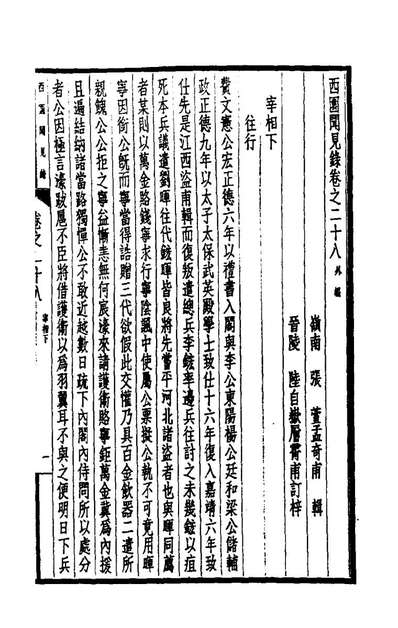 西園聞見錄卷之二十八 外編
嶺南 張 萱孟奇甫 輯
晉陵 陸自嶽層霄甫訂梓
宰相下
往行
費文憲公宏正德六年以禮書入閣與李公東陽楊公廷和梁公儲輔
政正德九年以太子太保武英殿學士致仕十六年復入嘉靖六年致
仕先是江西盜甫輯而復叛遣總兵李鋐率邊兵往討之未幾鋐以疽
死本兵議遣劉暉往代鋐暉皆良將先嘗平河北諸盜者也與暉同薦
者某則以萬金賂錢寧求行寧陰諷中使屬公票擬公執不可竟用暉
寧因銜公旣而寧當得誥贈三代欲假此交權乃具百金飲器二遣所
親餽公公拒之寧益慚恚無何宸濠來請護衛賂寧鉅萬金冀為內援
且遍結納諸當路獨憚公不敢近越數日疏下內閣內侍問所以處分
者公因極言濠跋扈不臣將借護衛以為羽翼耳不與之便明日下兵
西園聞見錄 卷之二十八 宰相下 一